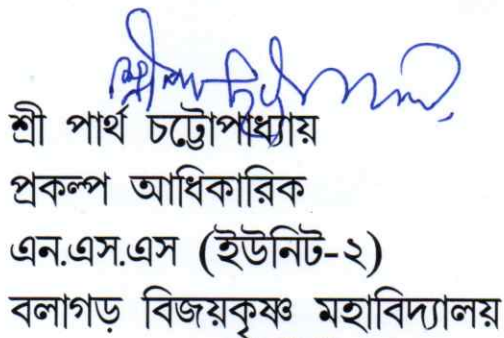 শ্রী পার্থ চট্টোপাধ্যায়
প্রকল্প আধিকারিক
এন.এস.এস (ইউনিট-২)
বলাগড় বিজয়কৃষ্ণ মহাবিদ্যালয়